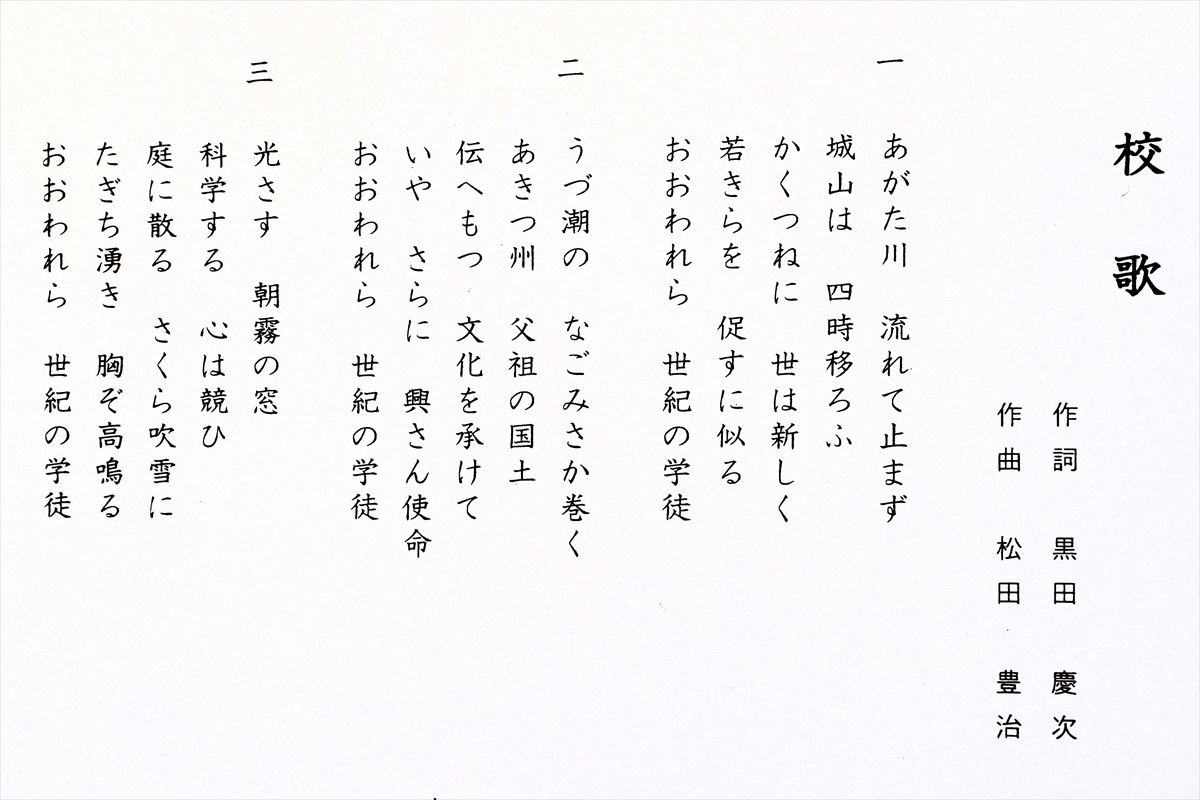 校歌
作詞 黒田 慶次
作曲 松田 豊治
一
あがた川 流れて止まず
城山は 四時移ろふ
かくつねに 世は新しく
若きらを 促すに似る
おおわれら 世紀の学徒
二
うづ潮の なごみさか巻く
あきつ州 父祖の国土
伝へもつ 文化を承けて
いや さらに 興さん使命
おおわれら 世紀の学徒
三
光さす 朝霧の窓
科学する 心は競ひ
庭に散る さくら吹雪に
たぎち湧き 胸ぞ高鳴る
おおわれら 世紀の学徒